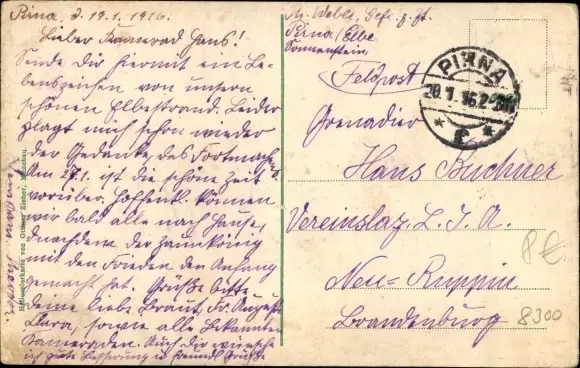 Pirna, d. 19.1.1916.
Lieber Kamerad Hans!
Sende Dir hiermit ein Le-
benszeichen von unsern
schönen Elbestrand. Leider
plagt mich schon wieder
der Gedanke, des Fortmach.
Am 27.1. ist die schöne Zeit
vorüber. Hoffentl. können
wir bald alle nach Hause,
dnachdem der Zaunkönig
mit den Frieden den Anfang
gemacht hat. Grüße bitte
deine liebe Braut, Fr. August
Clara, sowie alle Bekannten
Kameraden. Auch dir wünsche
ich gute Besserung u. freundl. Grüße
Dein Kam.
Heliocolorkarte von Ottmar Zieher, München.
Weber, Gefr. z. Zt.
Pirna/Elbe
Sonnenstein.
Feldpost
PIRNA
20.1.16.2-3N
* c *
Grenadier
Hans Buchner
Vereinslaz. L. I. A.
Neu-Ruppin
Brandenburg
8€
8300